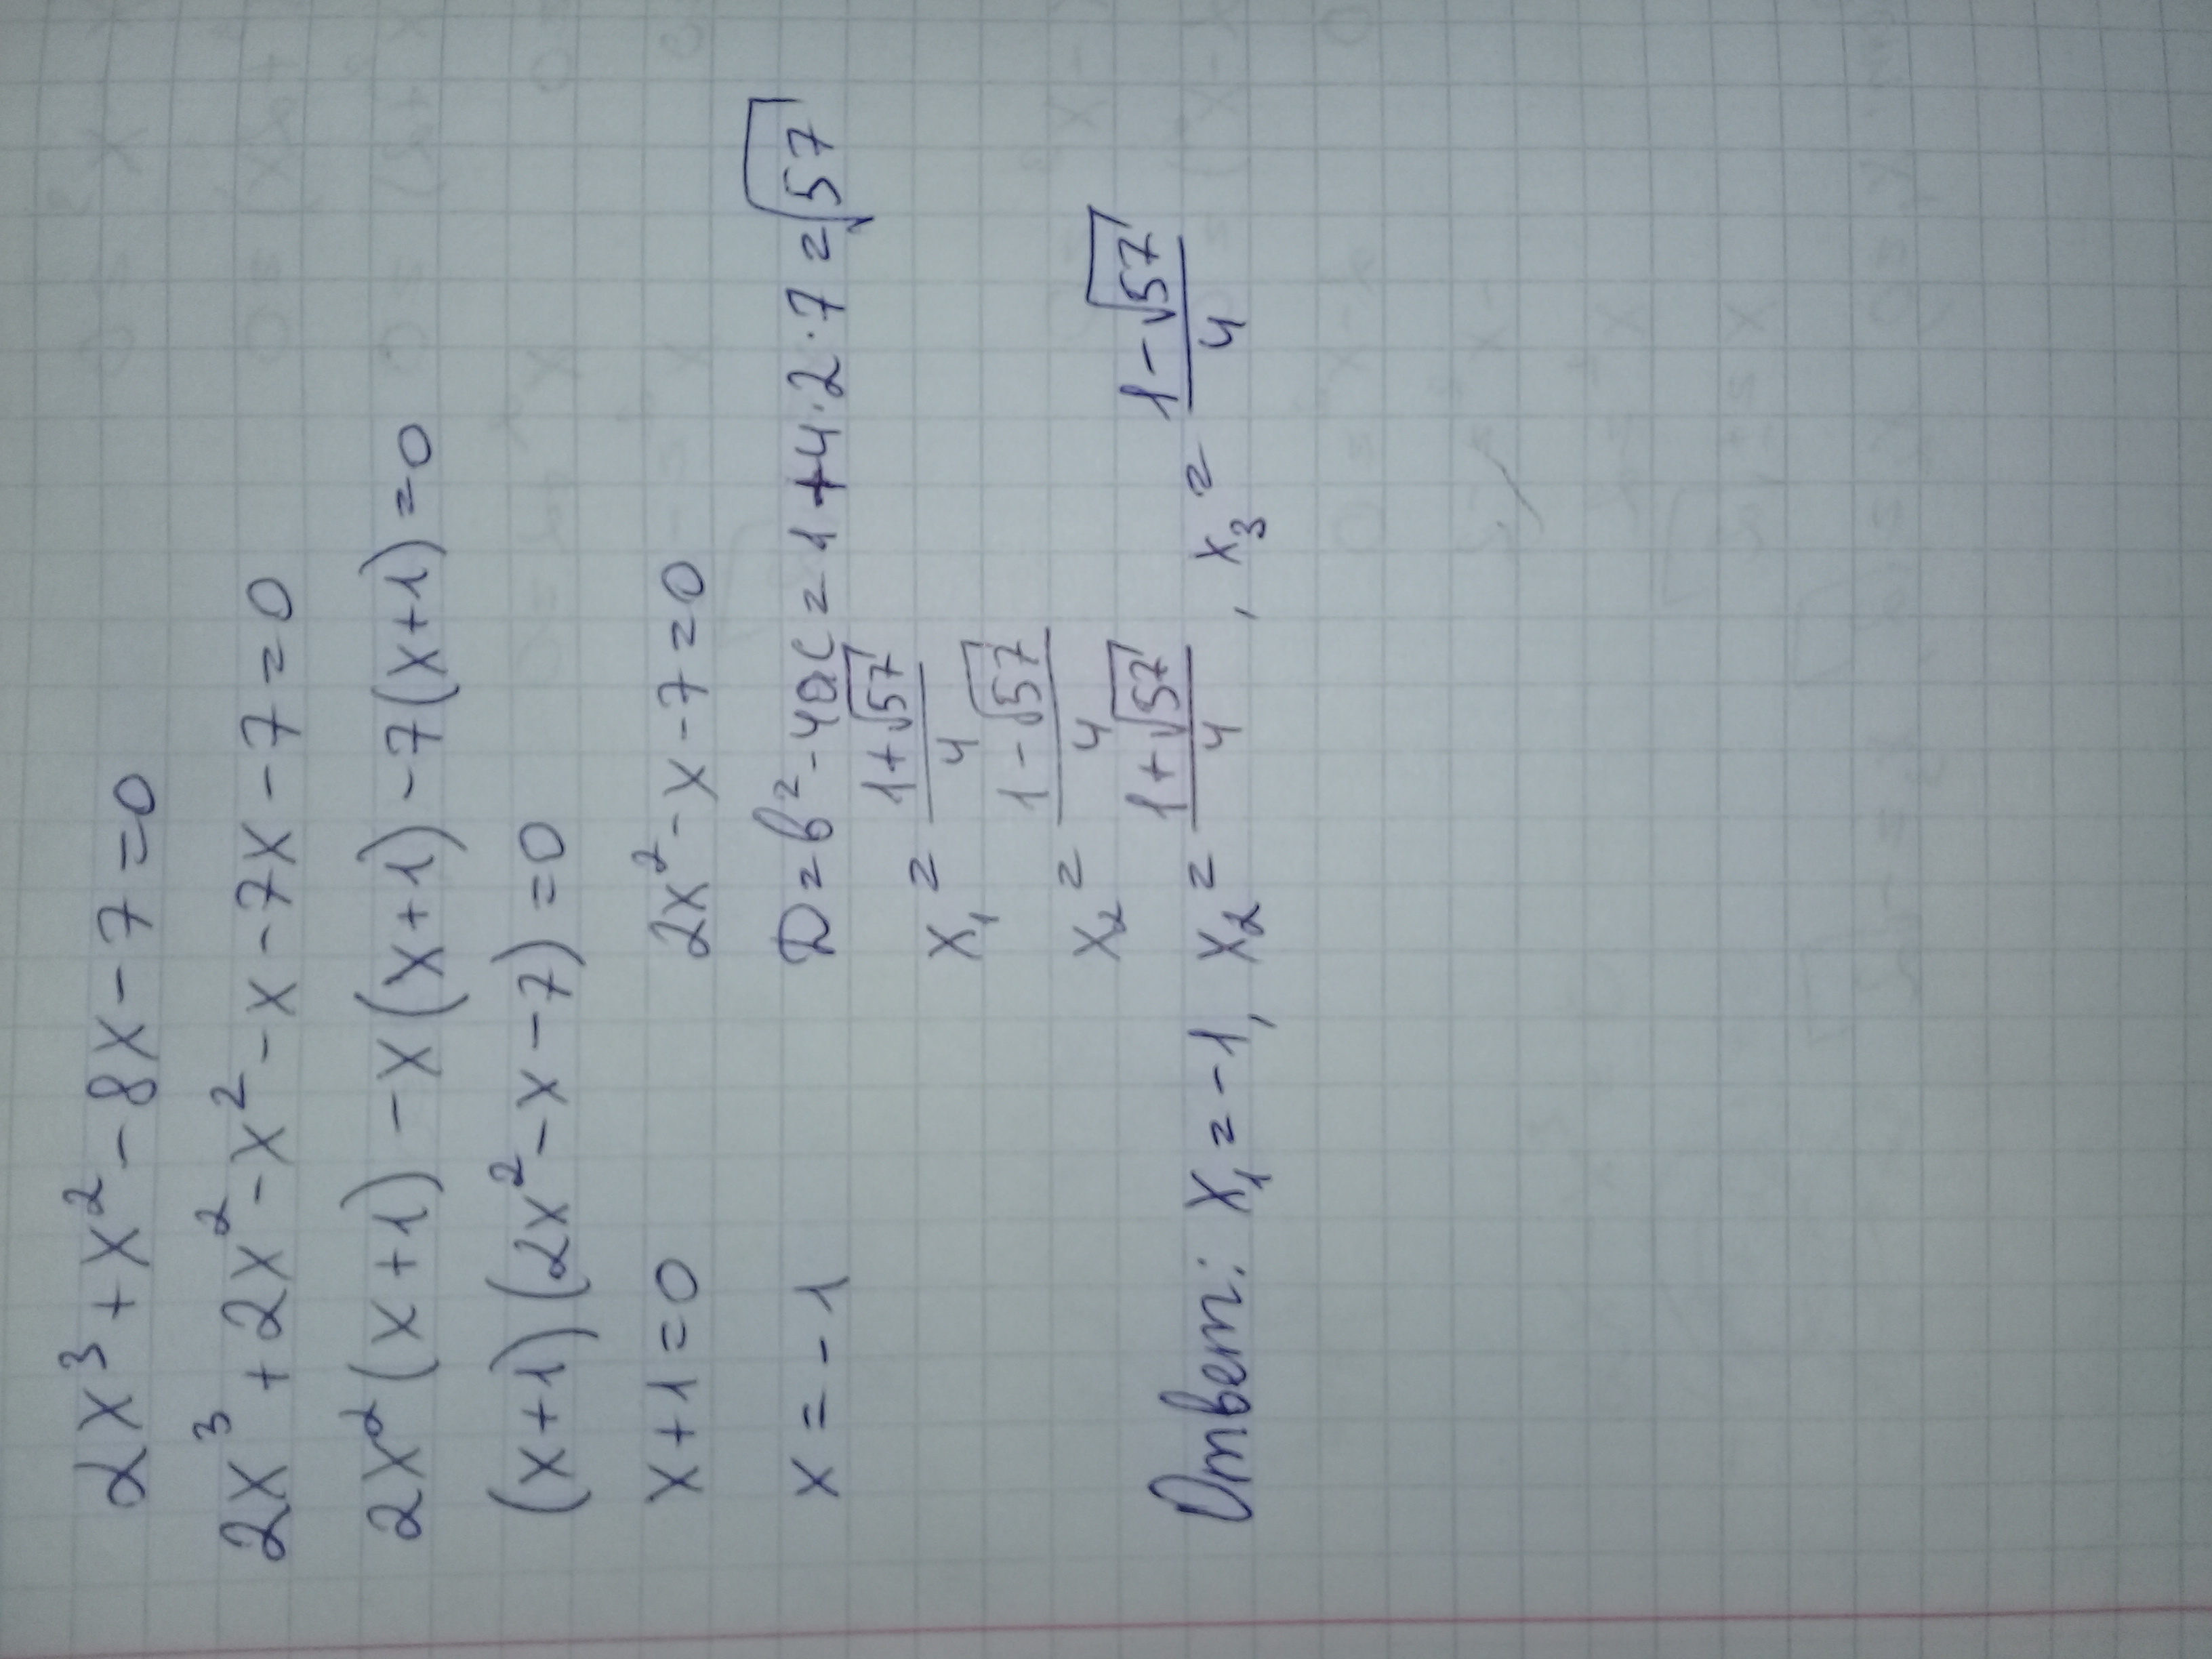 2x³ + x² - 8x - 7 = 0
2x³ + 2x² - x² - x - 7x - 7 = 0
2x²(x+1) - x(x+1) - 7(x+1) = 0
(x+1)(2x² - x - 7) = 0
x+1=0 2x² - x - 7 = 0
x = -1 D = b² - 4ac = 1 + 4·2·7 = √57
x₁ = (1+√57)/4
x₂ = (1-√57)/4
Ответ: x₁ = -1, x₂ = (1+√57)/4, x₃ = (1-√57)/4